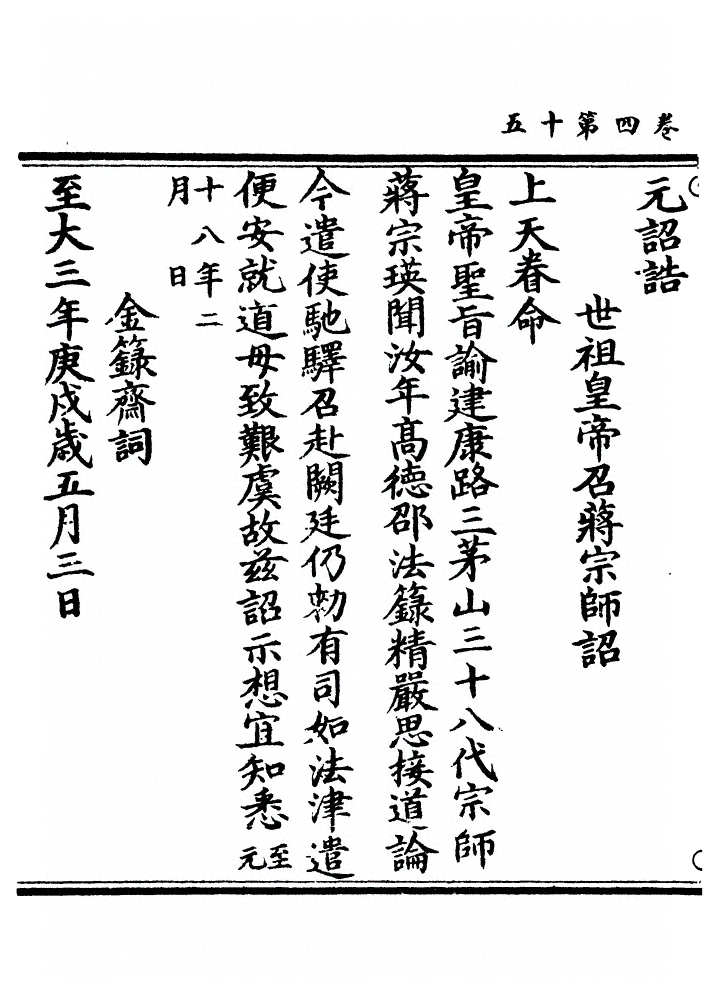 卷四第十五
元詔誥
世祖皇帝召蔣宗師詔
上天眷命
皇帝聖旨諭建康路三茅山三十八代宗師
蔣宗瑛聞汝年髙德邵法籙精嚴思接道論
今遣使馳驛召赴闕廷仍勑有司如法津遣
便安就道毋致艱虞故兹詔示想宜知悉至元
十八年二月日
金籙齋詞
至大三年庚戌歲五月三日